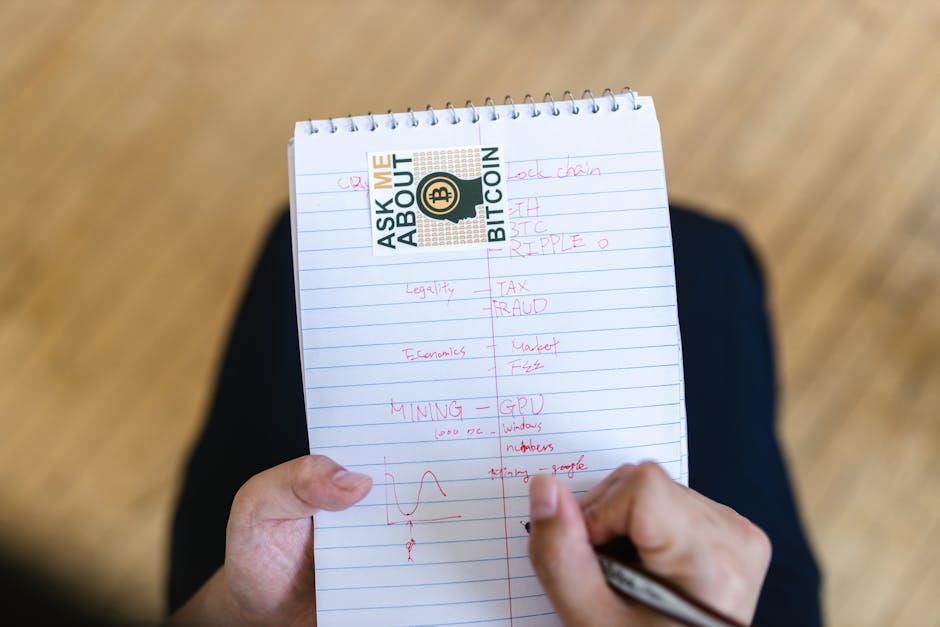 ASK ME
ABOUT
BITCOIN
lock chain
TH
BTC
RIPPLE
Legality - TAX
- FRAUD
Economics - Market
- FEE
MINING - GPU
1000 - Windows
numbers
Mining - google